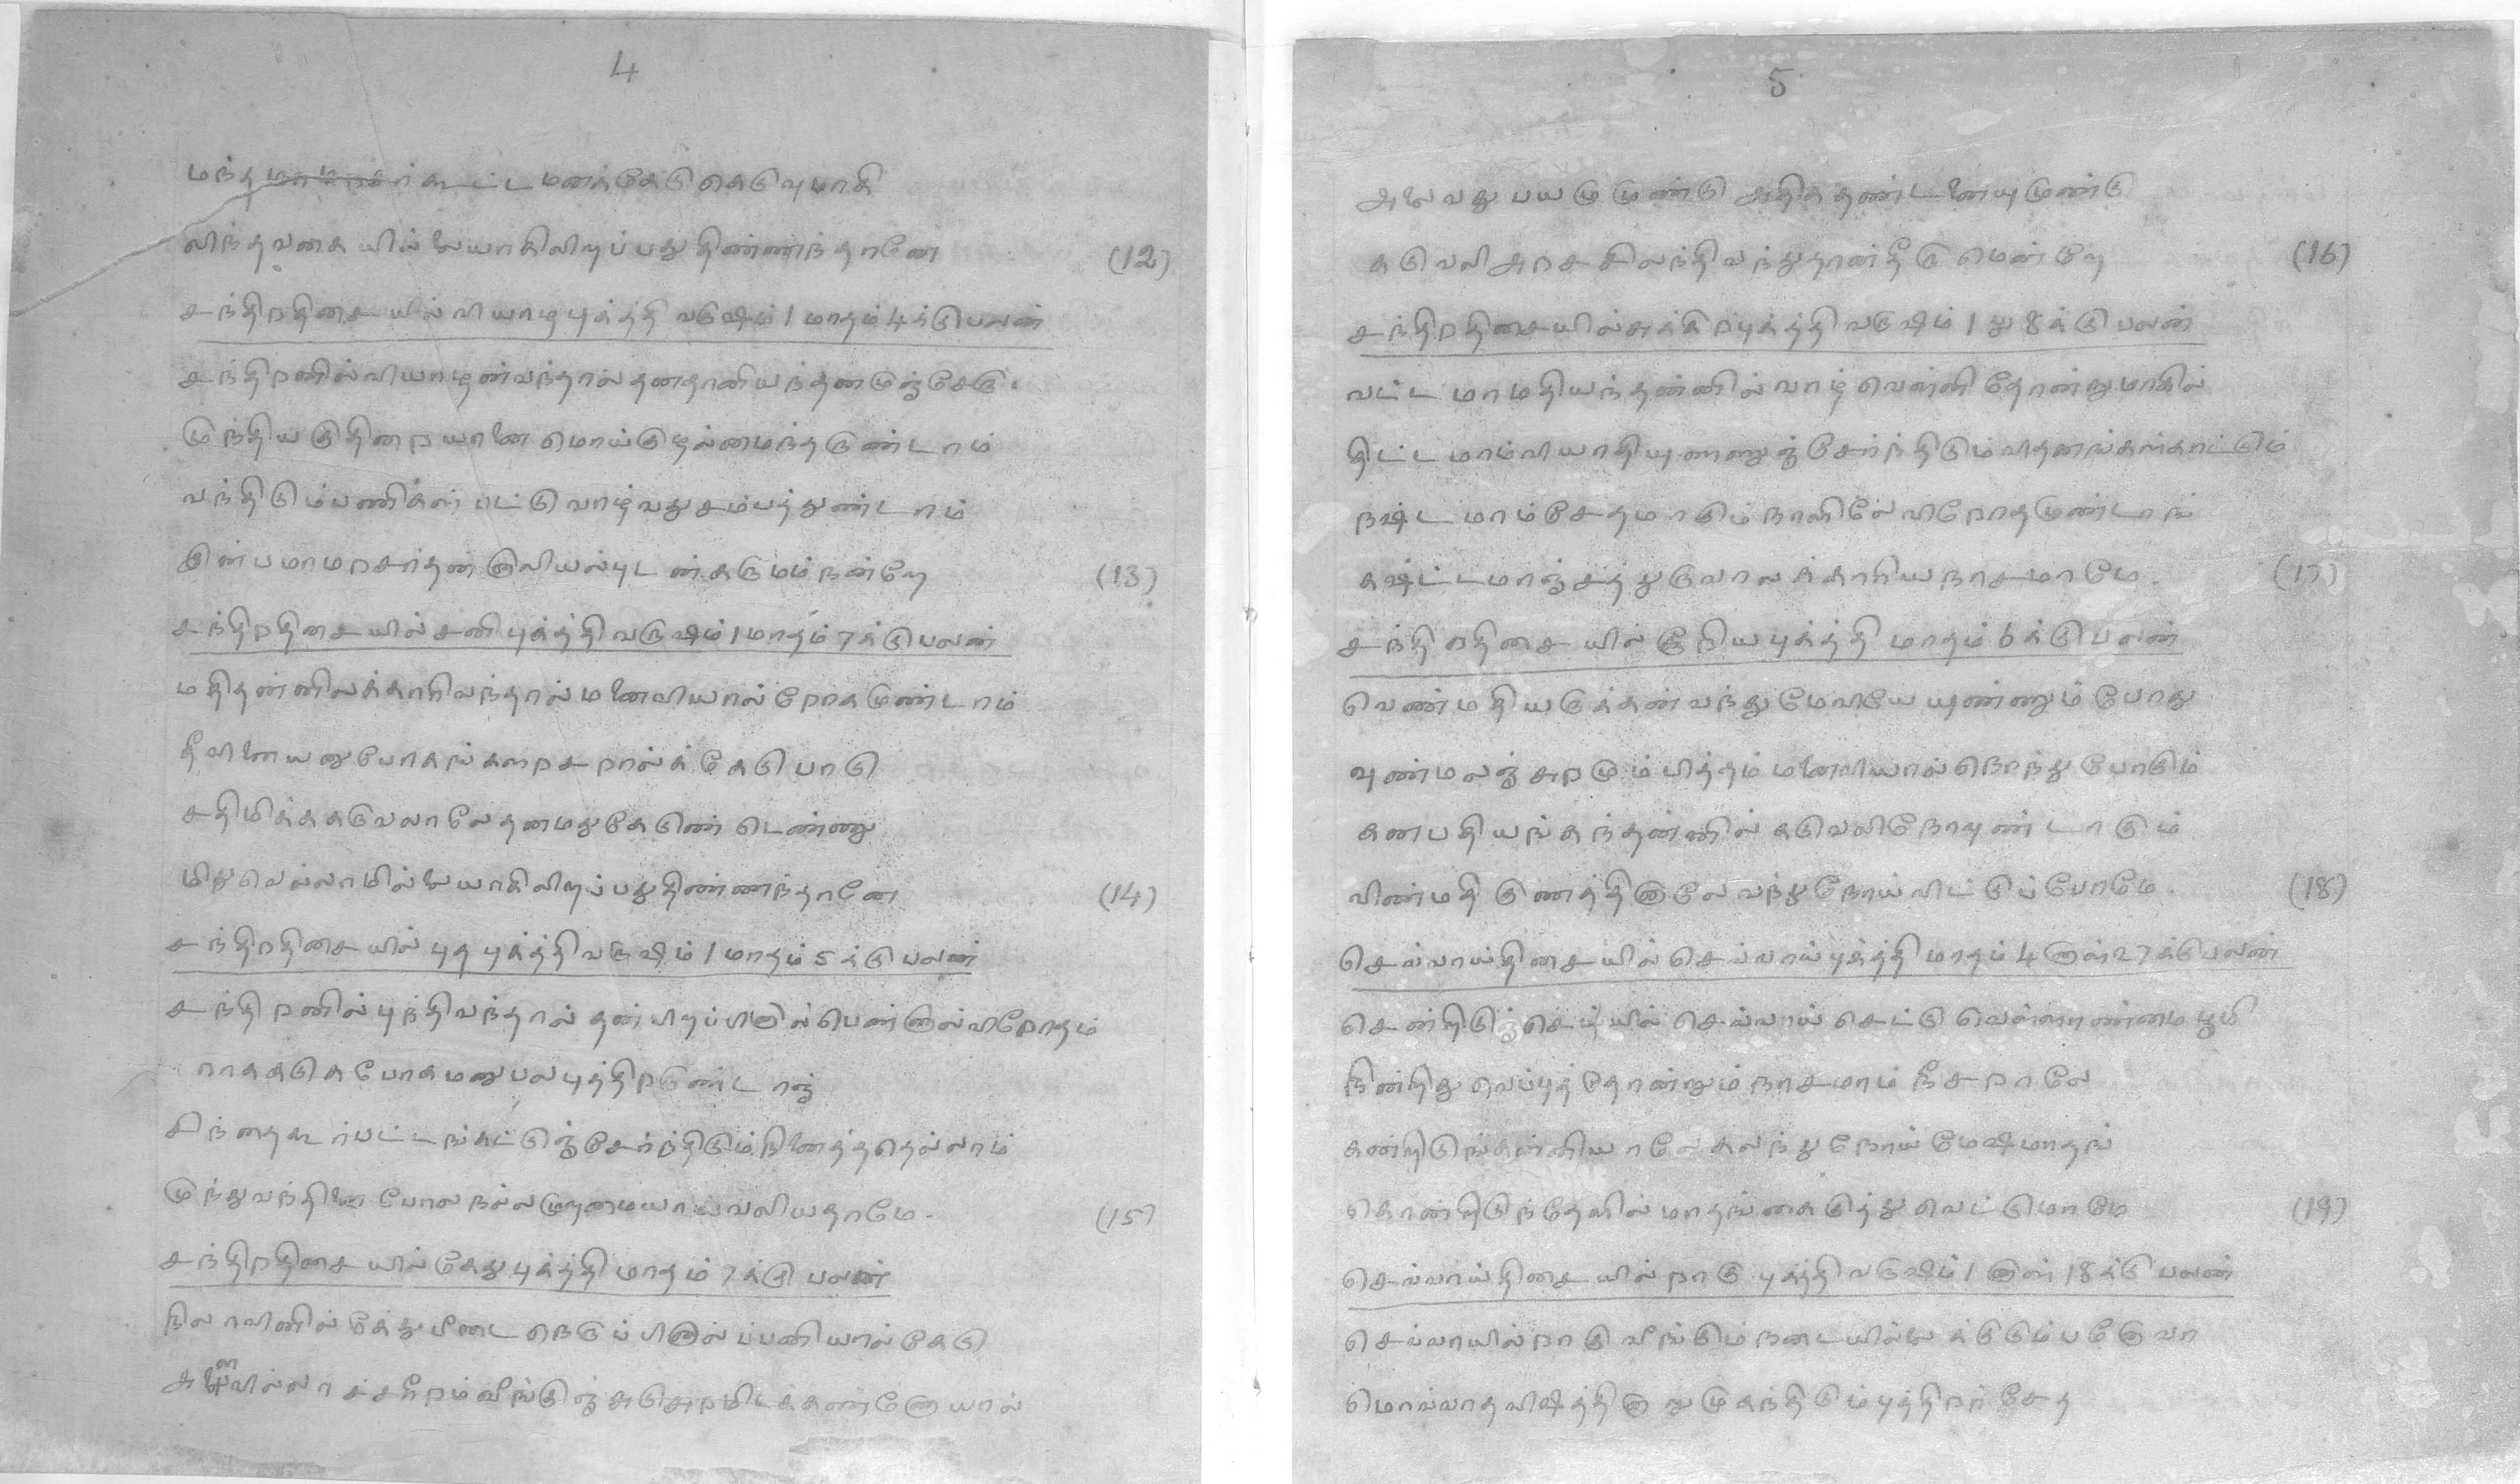 4
மந்தமாமறசர் கூட்டமனக்கேடு கெடுவுமாகி
லிந்தவகையில்லையாகிலிறப்பது திண்ணந்தானே (12)
சந்திறதிசையில் வியாழபுக்த்தி வருஷம் 1 மாதம் 4க்கு பலன்
சந்திறனில் வியாழன்வந்தால் தனதானியந்தனமுஞ்சேரு.
முந்திய குதிறையானை மொய்குழல்மைந்தருண்டாம்
வந்திடும்பணிகள் பட்டு வாழ்வது சம்பத்துண்டாம்
இன்பமாமறசர்தன்னாலியல்புடன் கருமம் நன்றே (13)
சந்திறதிசையில் சனிபுக்த்தி வருஷம் 1 மாதம் 7க்கு பலன்
மதிதன்னிலக்காரிவந்தால் மனைவியால் றோகமுண்டாம்
தீவினையனுபோகங்களறசறால்க் கேடுபாடு
சதிமிக்ககடுவலாலே தனமதுகேடுண்டென்னு
மிதுவெல்லாமில்லையாகிலிறப்பதுதிண்ணந்தானே (14)
சந்திறதிசையில் புதபுக்த்தி வருஷம் 1 மாதம் 5க்கு பலன்
சந்திறனில் புந்திவந்தால் தன்பிறப்பினில் பெண்ணால்விறோதம்
ராகசுகபோகமனுபலபுத்திறருண்டாஞ்
சிந்தைகூர்பட்டங்கட்டுஞ்சேர்ந்திடும் நினைத்ததெல்லாம்
முந்துவந்தினை போல நல்லமுறமையாயவலியதாமே. (15)
சந்திறதிசையில் கேதுபுக்த்தி மாதம் 7க்கு பலன்
நிலாவினில் கேதுபீடை நெருப்பினால்ப்பனியால் கேடு
அளவில்லாச்சரீறம்வீங்குஞ் சுடுசுறமிடக்கண்ணோயால்
5
அலைவது பயமுமுண்டு அதிகதண்டனையுமுண்டு
கடுவலி அறச சிலந்திவந்துதான்தீருமென்றே (16)
சந்திறதிசையில்சுக்கிறபுக்த்தி வருஷம் 1 மீ 8க்கு பலன்
வட்டமாமதியந்தன்னில் வாழ்வெள்ளி தோன்றுமாகில்
திட்டமாம்வியாதியுணணுஞ்சேர்ந்திடும்விதனங்கள்காட்டும்
நஷ்டமாம்சேதமாகும் நாளிலேவிறோதமுண்டாங்
கஷ்ட்டமாஞ்சத்துருவாலக்காரியநாசமாமே. (17)
சந்திறதிசையில் சூரியபுக்த்தி மாதம் 6க்கு பலன்
வெண்மதியருக்கன்வந்துமேவியேயுண்ணும்போது
வுண்மலஞ்சுறமும்பித்தம்மனைவியால்நொந்துபோகும்
கணபதியங்கந்தன்னில் கடுவலிநோயுண்டாகும்
விண்மதி குணத்தினாலேவந்துநோய்விட்டுப்போமே. (18)
செவ்வாய்திசையில்செவ்வாய்புக்த்திமாதம் 4 னாள் 27க்குபலன்
சென்றிடுஞ்செயில் செவ்வாய் செட்டு வெள்ளாண்மைபூமி
நின்றிது வெப்புத்தோன்றும் நாசமாம் நீசறாலே
கன்றிடுங்கன்னியாலே கலந்துநோய்மேஷமாதங்
கொன்றிடுந்தேளில்மாதங்கைகுத்துவெட்டுமாமே (19)
செவ்வாய்திசையில் றாகு புக்த்தி வருஷம் 1 னாள் 18க்கு பலன்
செவ்வாயில்றாகு வீங்கும் நடையில்லைக்குடும்பனோவா
மொவ்வாதவிஷத்தினாலுமுகந்திடும்புத்திறர் சேத